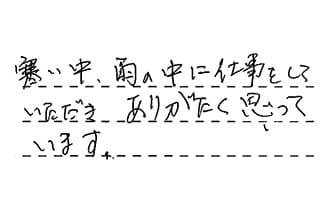 寒い中、雨の中に仕事をして
いただき ありがたく思って
います。